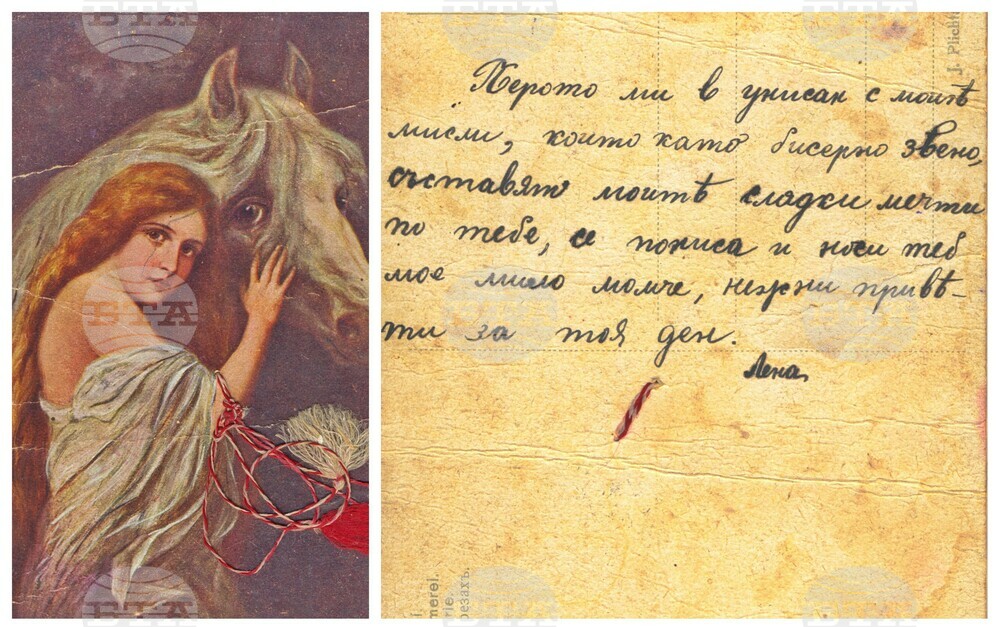 БТА
БТА
БТА
БТА
БТА
БТА
J. Plicht
Перото ми в унисан с моитѣ
мисли, които като бисерно звено,
съставят моитѣ сладки мечти
по тебе, се пописа и носи теб
мое мило момче, нежни привѣ-
ти за тоя ден.
Лена
merei.
rie.
резахъ.